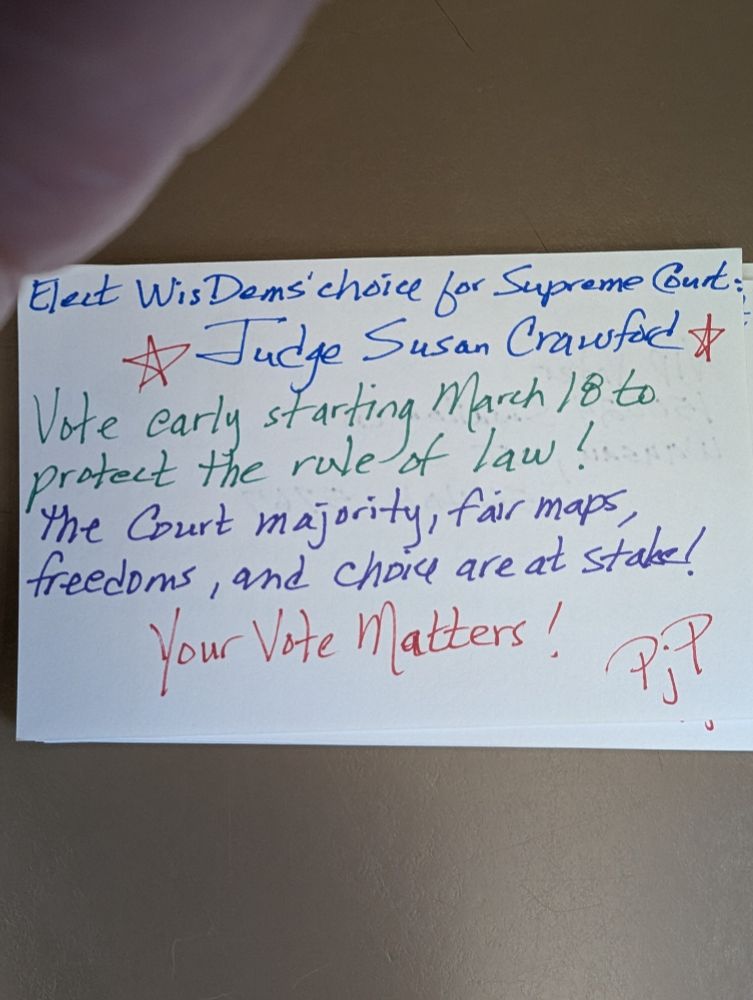 Elect WisDems' choice for Supreme Court:
☆ Judge Susan Crawford ☆
Vote early starting March 18 to
protect the rule of law!
The Court majority, fair maps,
freedoms, and choice are at stake!
Your Vote Matters!
PjP